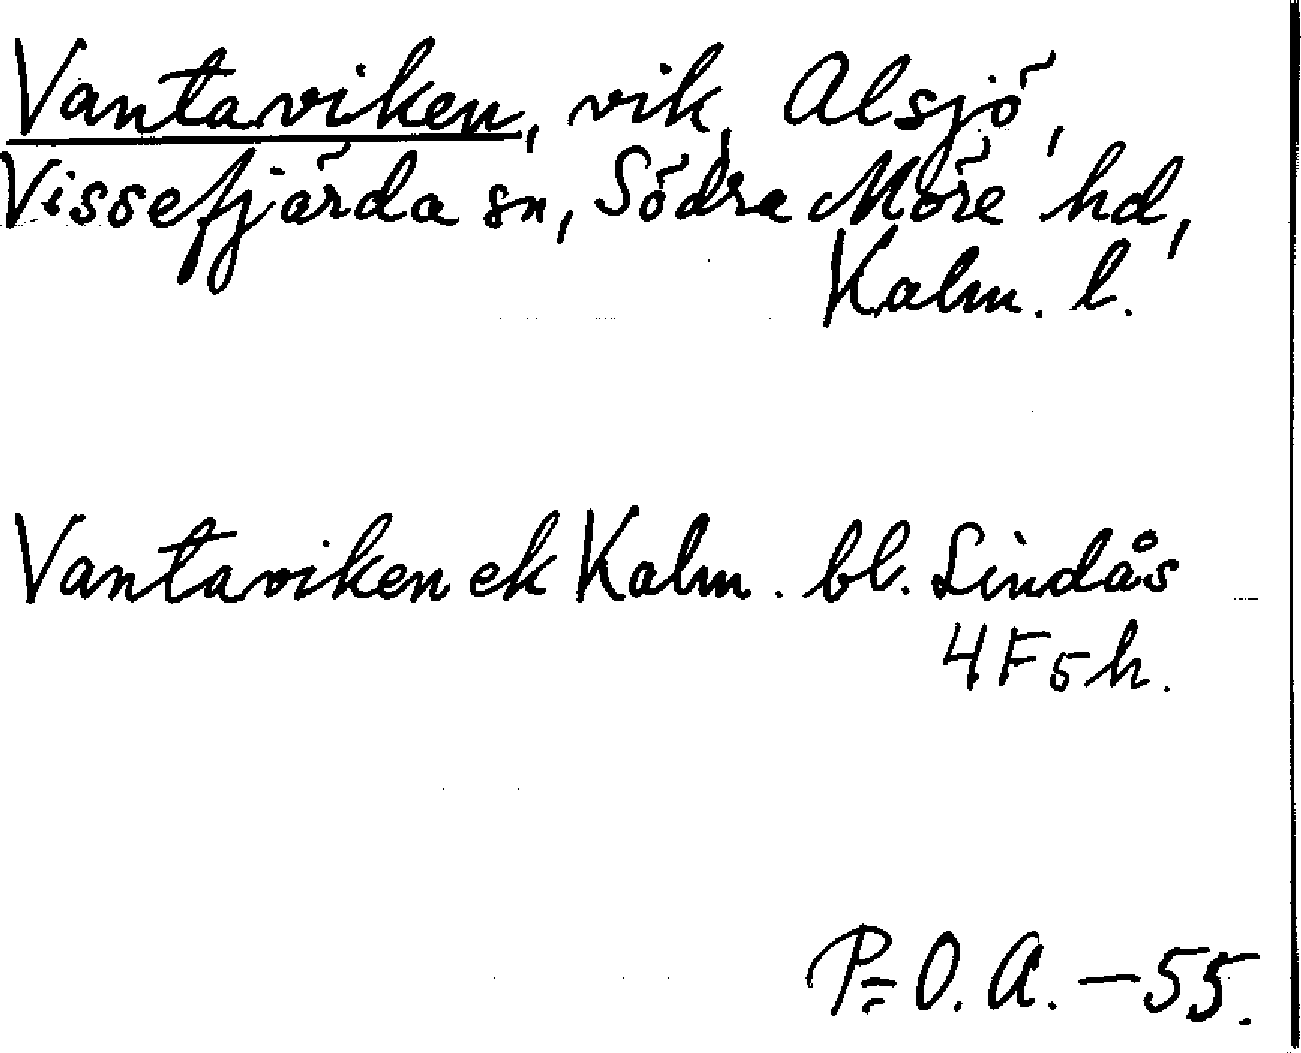 Vantaviken, vik, Alsjö,
Vissefjärda sn, Södra Möre hd,
Kalm. l.
Vantaviken ek Kalm. bl. Lindås
4F5h.
P=O.A.—55.